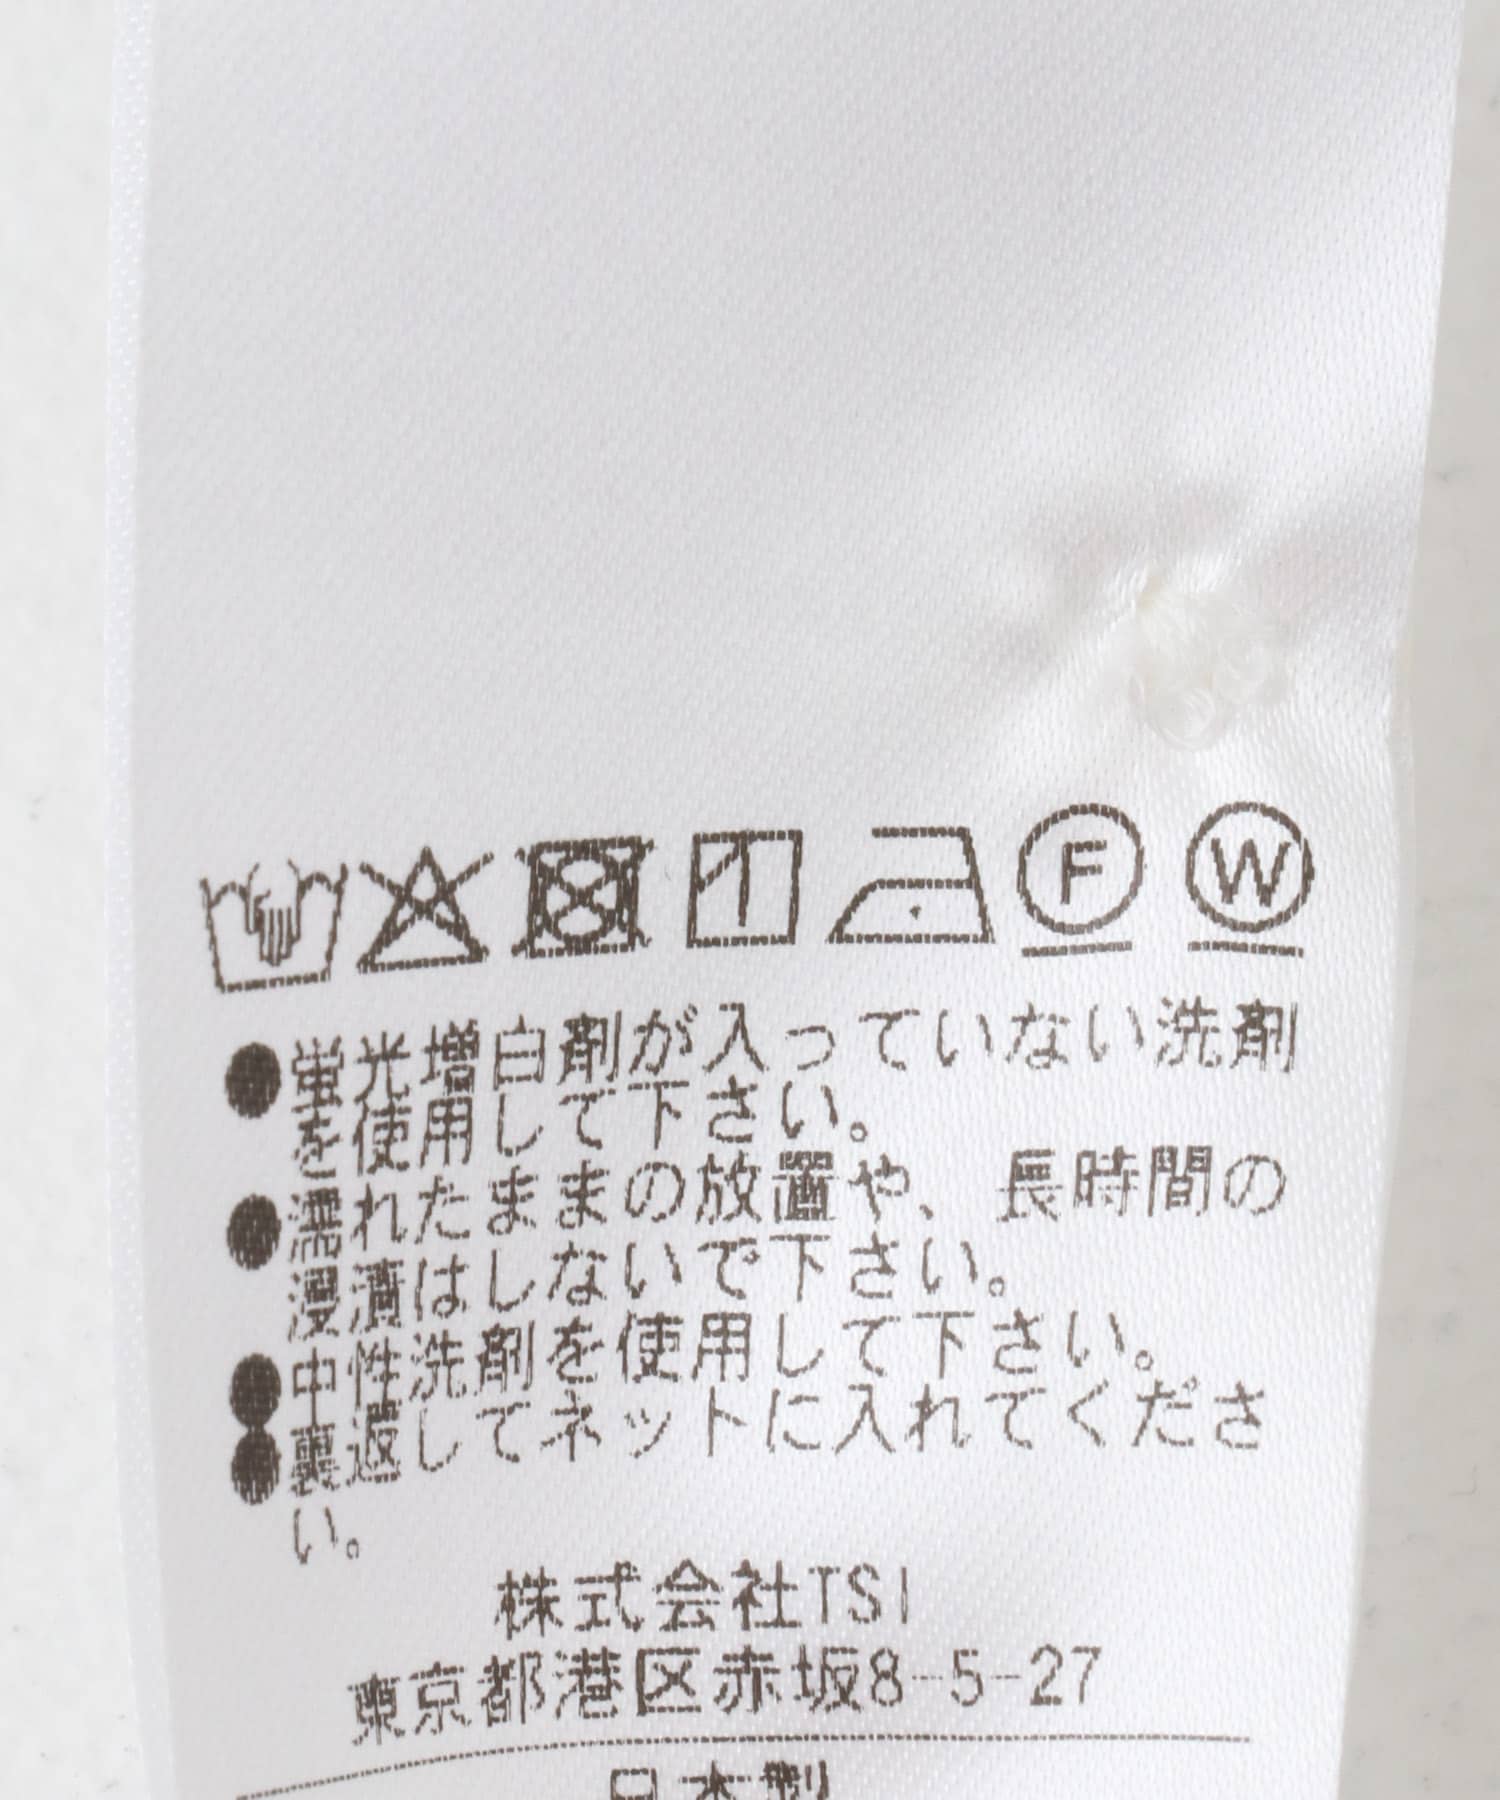 F W
●蛍光増白剤が入っていない洗剤
を使用して下さい。
●濡れたままの放置や、長時間の
浸漬はしないで下さい。
●中性洗剤を使用して下さい。
●裏返してネットに入れてくださ
い。
株式会社TSI
東京都港区赤坂8-5-27
日本製